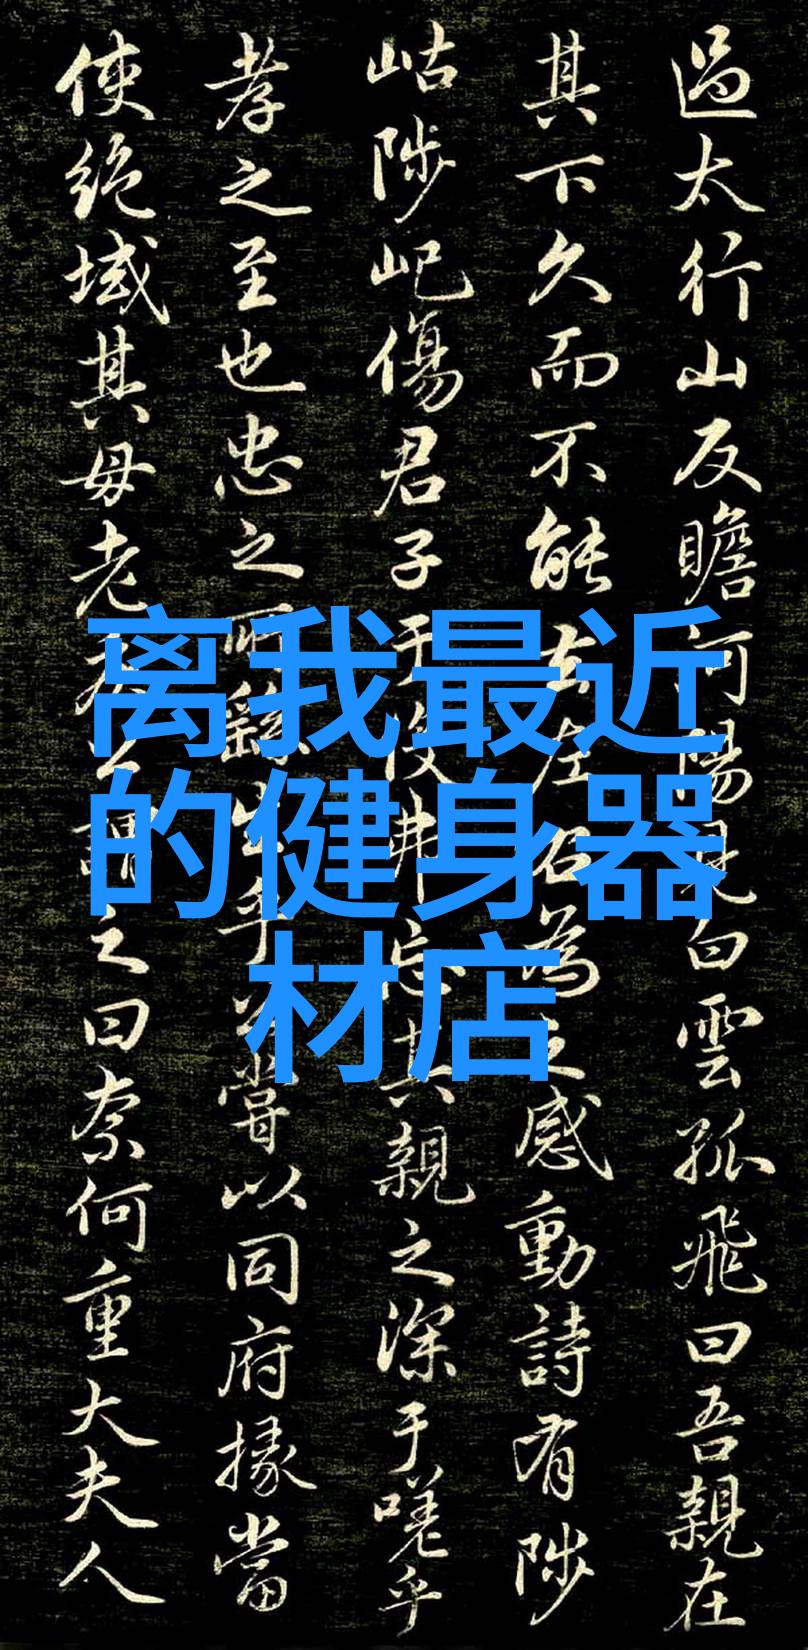 過太行山反瞻河陽見白雲孤飛曰吾親在
其下久而不能去左右為之感動詩有陟
岵陟屺傷君子于役弗忘其親之深于嗟乎
孝之至也忠之所繇生乎公嘗以同府掾當
使絕域其母老疾公謂之曰奈何重大夫人
离我最近
的健身器
材店